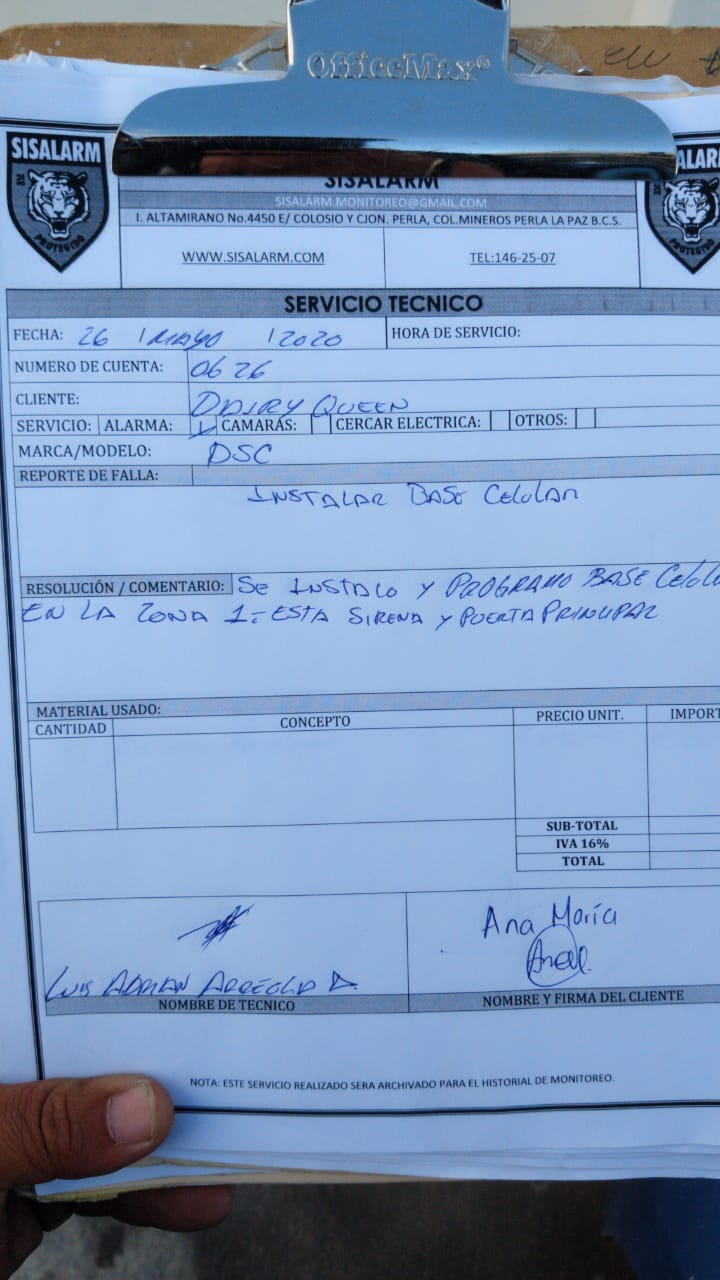 OfficeMax®
en
SISALARM
PROTEGIDO
SISALARM
SISALARM.MONITOREO@GMAIL.COM
I. ALTAMIRANO No.4450 E/ COLOSIO Y CJON. PERLA, COL.MINEROS PERLA LA PAZ B.C.S.
WWW.SISALARM.COM TEL:146-25-07
ALAR
PROTEGIDO
SERVICIO TECNICO
FECHA: 26 / MAYO / 2020 HORA DE SERVICIO:
NUMERO DE CUENTA: 0626
CLIENTE: DAIRY QUEEN
SERVICIO: ALARMA: ✓ CAMARÁS: CERCAR ELECTRICA: OTROS:
MARCA/MODELO: DSC
REPORTE DE FALLA:
INSTALAR BASE CELULAR
RESOLUCIÓN / COMENTARIO: SE INSTALO Y PROGRAMO BASE CELUL
EN LA ZONA 1.- ESTA SIRENA Y PUERTA PRINCIPAL
MATERIAL USADO:
CANTIDAD CONCEPTO PRECIO UNIT. IMPORT
SUB-TOTAL
IVA 16%
TOTAL
Ana María
LUIS ADRIAN ARREOLA
NOMBRE DE TECNICO NOMBRE Y FIRMA DEL CLIENTE
NOTA: ESTE SERVICIO REALIZADO SERA ARCHIVADO PARA EL HISTORIAL DE MONITOREO.